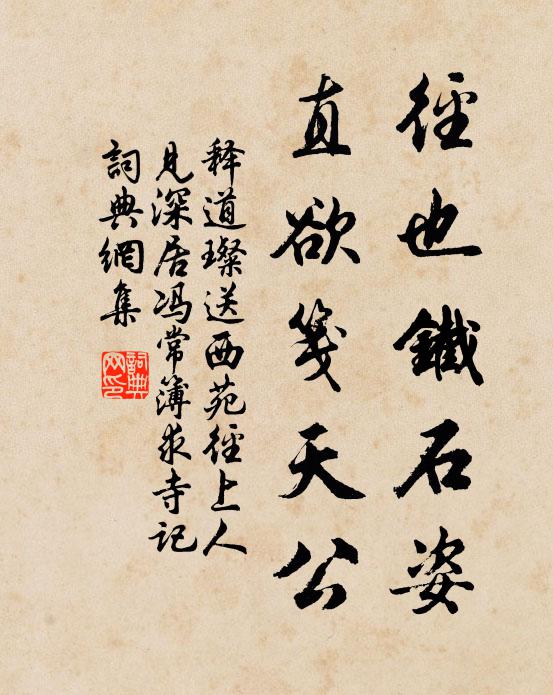 徑也鐵石姿
直欲箋天公
释道璨送西苑徑上人
見深居冯常簿求寺記
詞典網集
詞典網印